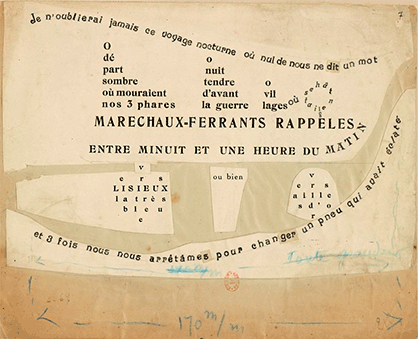 7
Je n'oublierai jamais ce voyage nocturne où nul de nous ne dit un mot
O
dé
part
sombre
où mouraient
nos 3 phares
o
nuit
tendre
d'avant
la guerre
o
vil
lages
où
se hât
aient
MARECHAUX-FERRANTS RAPPELES
ENTRE MINUIT ET UNE HEURE DU MATIN
v
ers
LISIEUX
la très
bleu
e
ou bien
v
ers
aille
s d'o
r
et 3 fois nous nous arrêtâmes pour changer un pneu qui avait éclaté
170 m/m